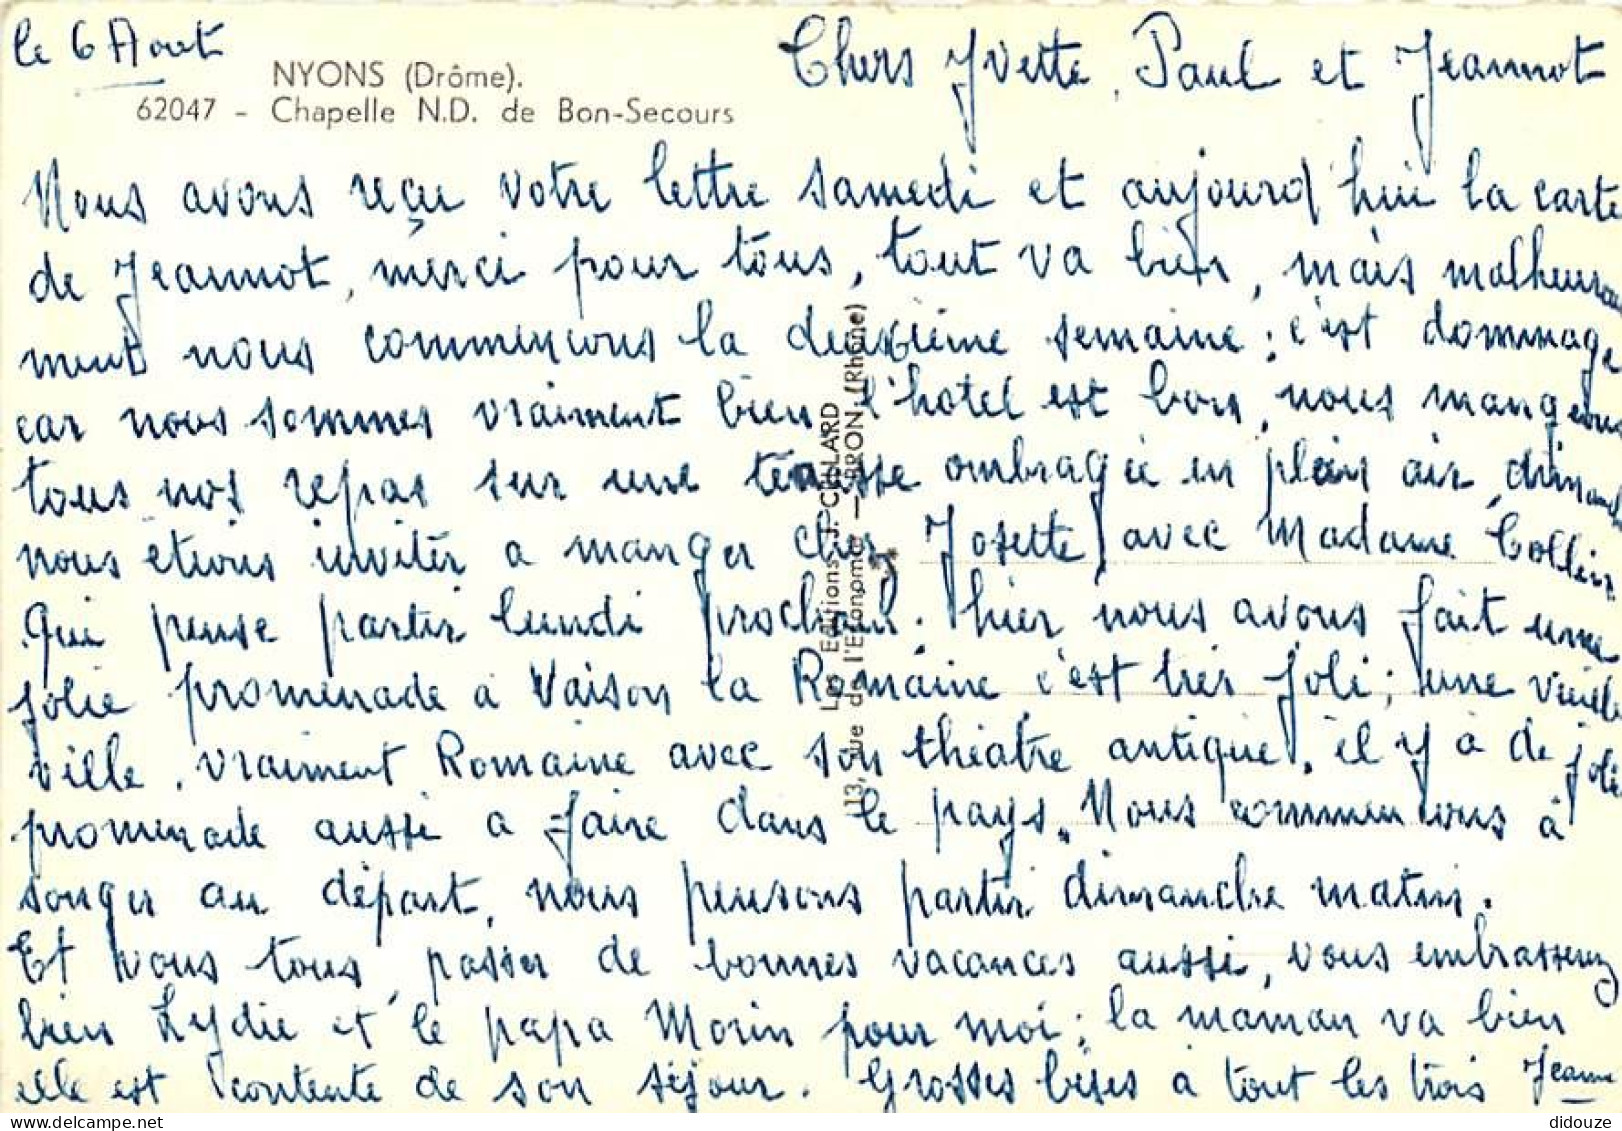 le 6 Aout
NYONS (Drôme).
62047 - Chapelle N.D. de Bon-Secours
Chers Yvette, Paul et Jeannot
Nous avons reçu votre lettre samedi et aujourd'hui la carte
de Jeannot, merci pour tous, tout va bien, mais malheureu
ment nous commençons la deuxième semaine; c'est dommage
car nous sommes vraiment bien l'hotel est bon, nous mangeons
tous nos repas sur une terasse ombragée en plein air, dimanche
nous étions inviter a manger chez Josette, avec Madame Collin
Qui pense partir lundi prochain. hier nous avons fait une
jolie promenade a Vaison la Romaine, c'est très joli; une vieille
ville, vraiment Romaine avec son théatre antique, il y a de jolie
promenade aussi a faire dans le pays. Nous commencons à
songer au départ, nous pensons partir dimanche matin.
Et vous tous, passer de bonnes vacances aussi, vous embrasserez
bien Lydie et le papa Morin pour moi; la maman va bien
elle est contente de son séjour. Grosses bises a tout les trois Jeanne
Les Editions J. CELLARD
13, rue de l'Économie — BRON (Rhône)
didouze